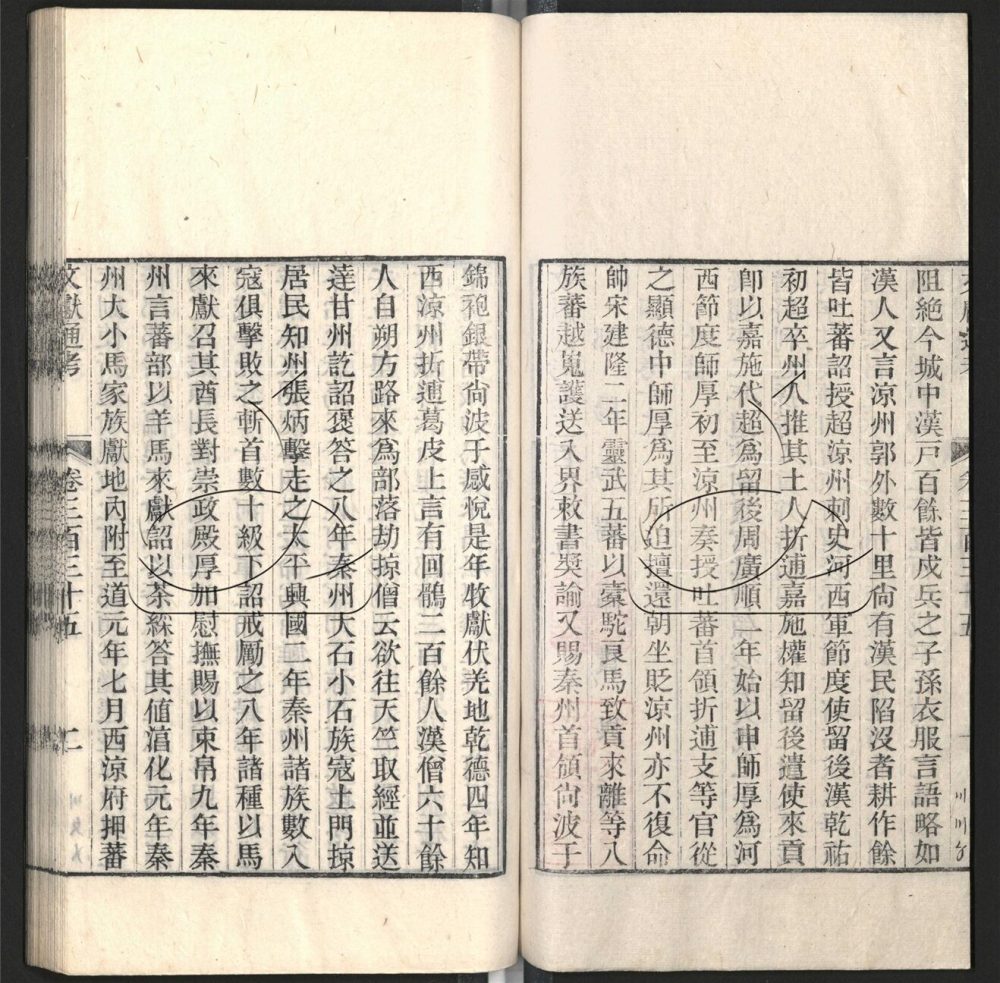 阻絕今城中漢戸百餘皆戍兵之子孫衣服言語略如
漢人又言涼州郭外數十里尙有漢民陷沒者耕作餘
皆吐蕃詔授超涼州刺史河西軍節度使留後漢乾祐
初超卒州人推其土人折逋嘉施權知留後遣使來貢
卽以嘉施代超爲留後周廣順二年始以申師厚爲河
西節度師厚初至涼州奏授吐蕃首領折逋支等官從
之顯德中師厚爲其所迫擅還朝坐貶涼州亦不復命
帥宋建隆二年靈武五蕃以橐駝良馬致貢來離等八
族蕃越嵬護送入界敕書奬諭又賜秦州首領尙波于
錦袍銀帶尙波于感悅是年牧獻伏羌地乾德四年知
西涼州折逋葛皮上言有回鶻二百餘人漢僧六十餘
人自朔方路來爲部落劫掠僧云欲往天竺取經並送
達甘州訖詔褒答之八年秦州大石小石族寇土門掠
居民知州張炳擊走之太平興國二年秦州諸族數入
寇俱擊敗之斬首數十級下詔戒勵之八年諸種以馬
來獻召其酋長對崇政殿厚加慰撫賜以束帛九年秦
州言蕃部以羊馬來獻詔以茶綵答其値淯化元年秦
州大小馬家族獻地內附至道元年七月西涼府押蕃
文獻通考 卷三百三十五 二